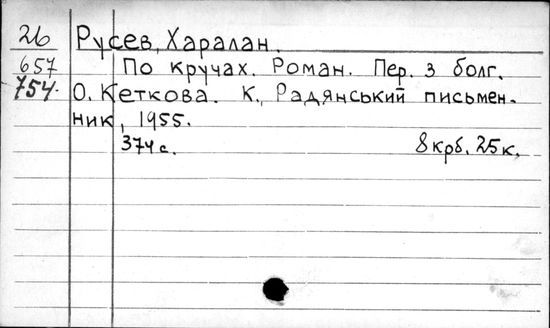 26 Русев, Харалан.
657 По кручах. Роман. Пер. з болг.
754. О. Кеткова. К., Радянський письмен-
ник, 1955.
374 с. 8 крб. 25 к.